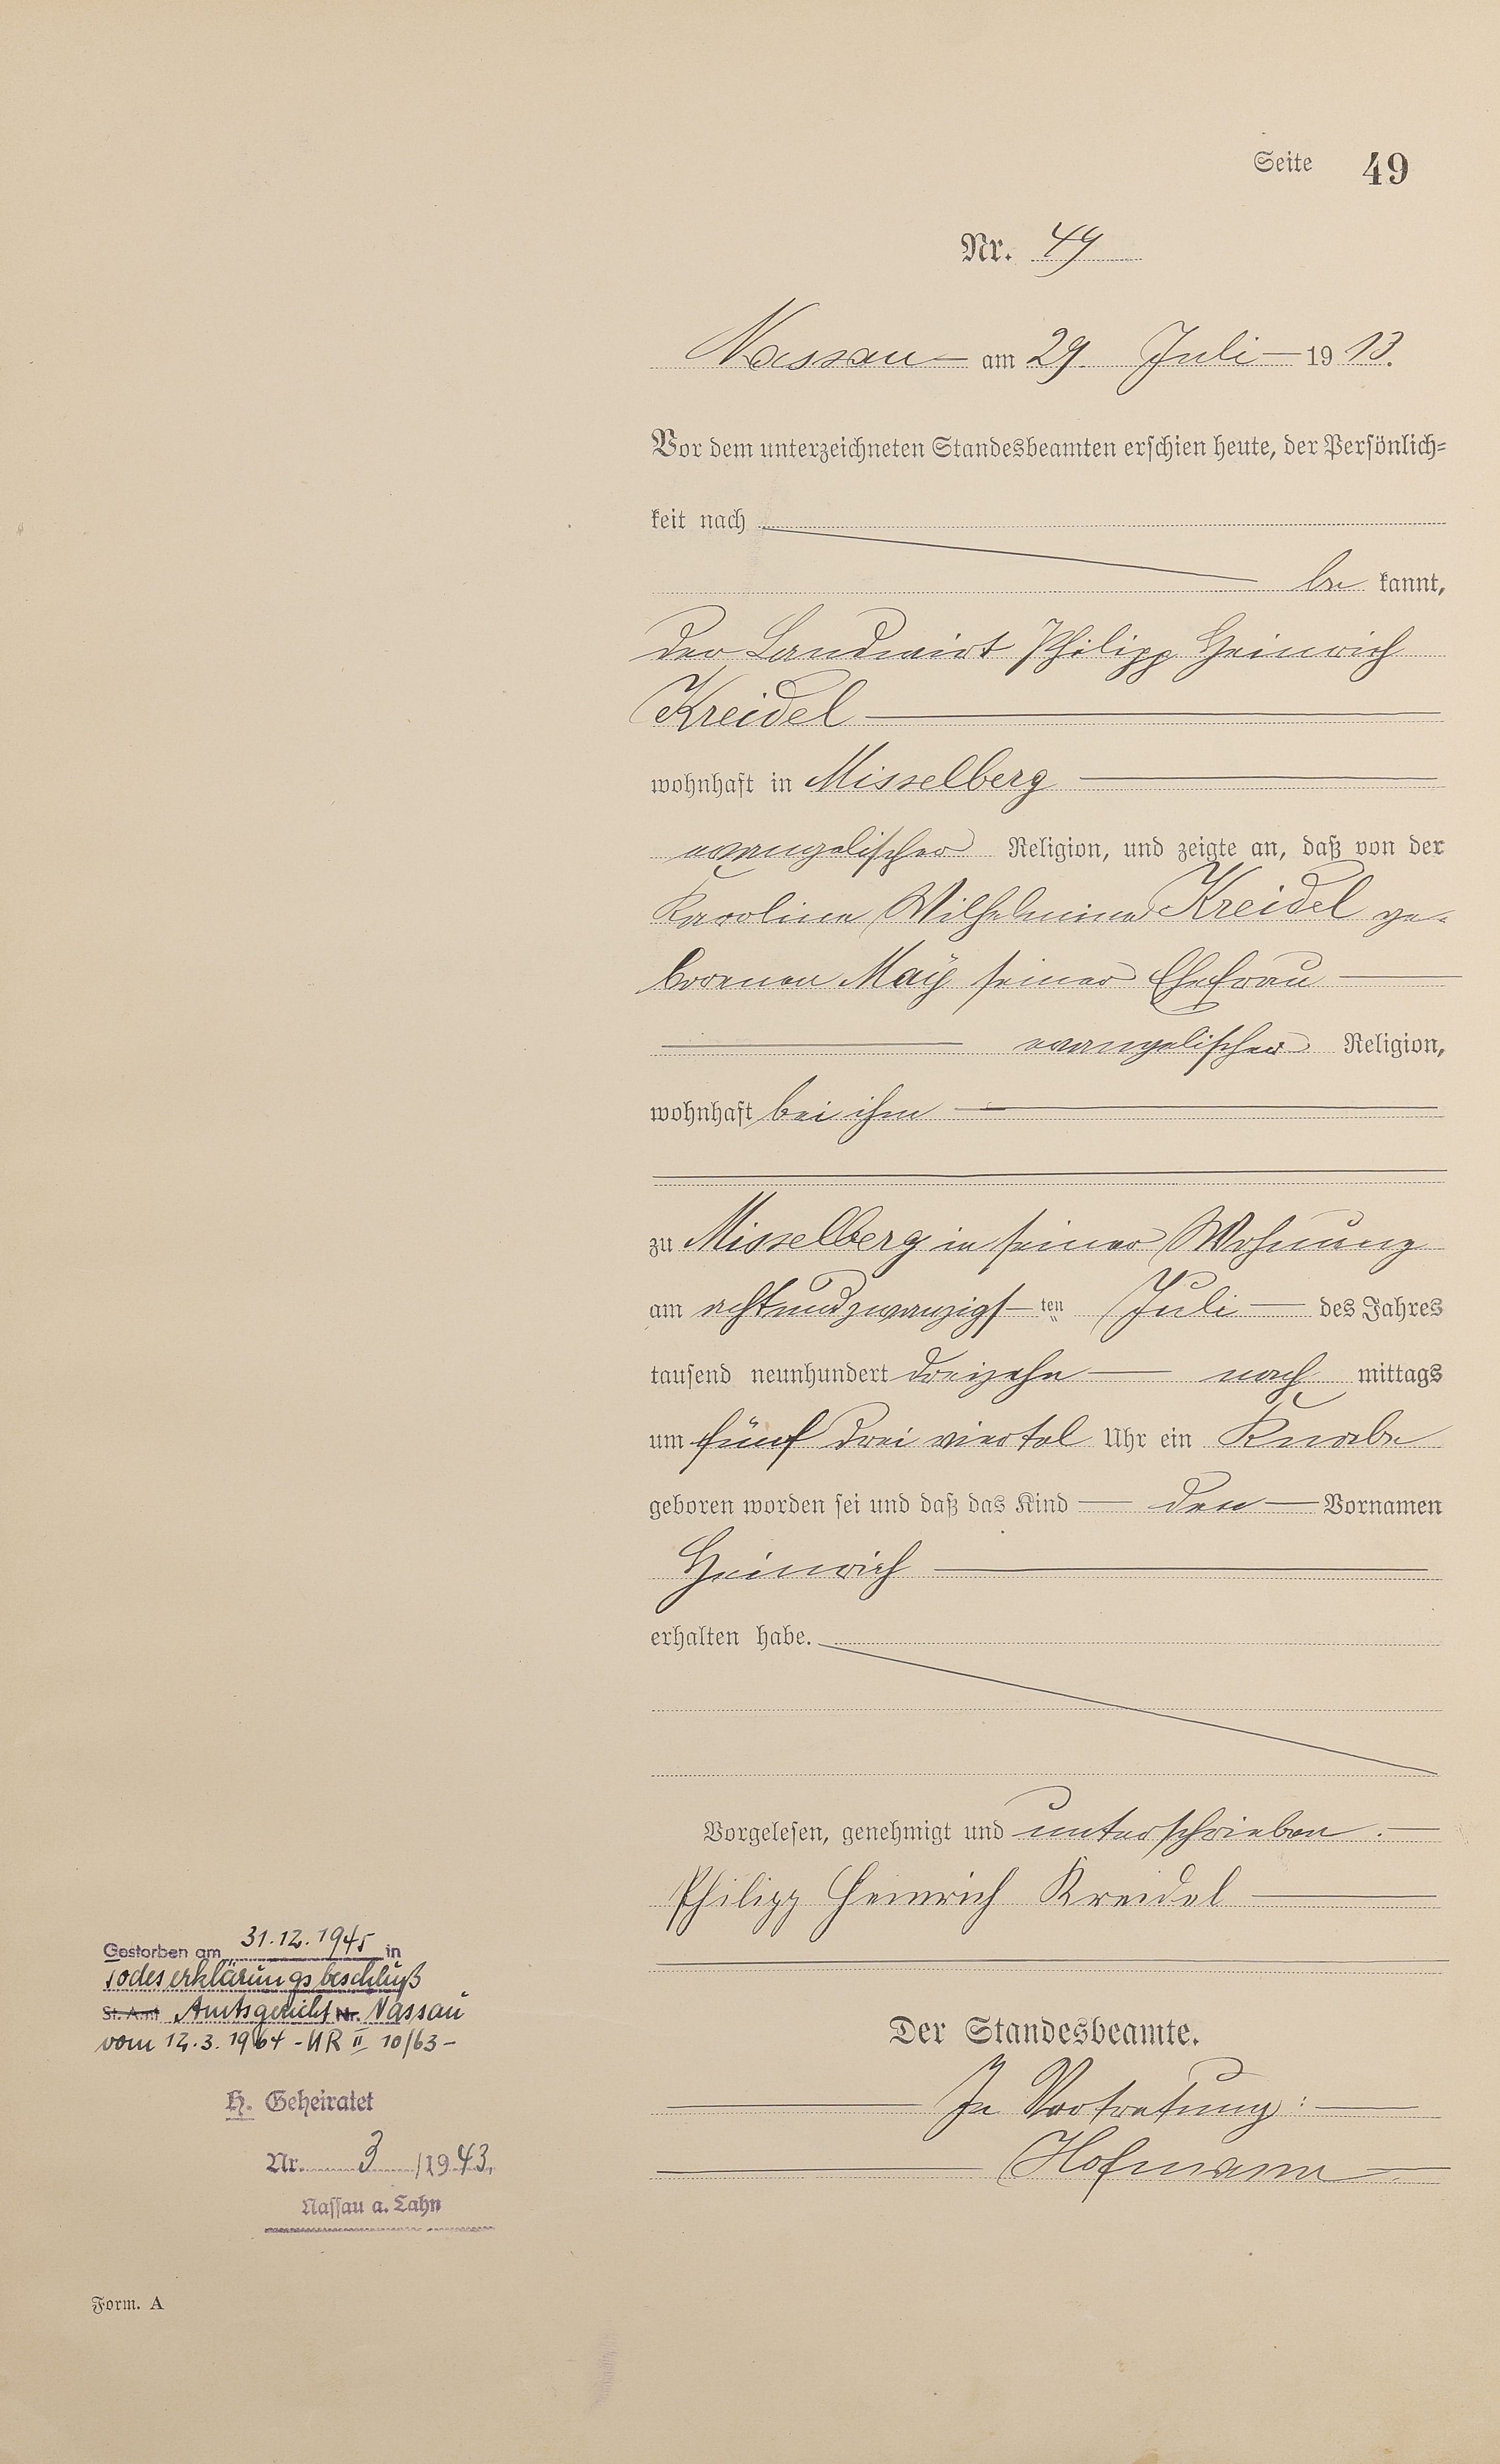 Seite 49
Nr. 49
Nassau am 29. Juli 1913.
Vor dem unterzeichneten Standesbeamten erschien heute, der Persönlich=
keit nach
be kannt,
der Landwirt Philipp Heinrich
Kreidel
wohnhaft in Misselberg
evangelischer Religion, und zeigte an, daß von der
Karoline Wilhelmine Kreidel ge-
borenen Maÿ seiner Ehefrau
evangelischer Religion,
wohnhaft bei ihm
zu Misselberg in seiner Wohnung
am achtundzwanzigsten Juli des Jahres
tausend neunhundert dreizehn nach mittags
um fünf drei viertel Uhr ein Knabe
geboren worden sei und daß das Kind den Vornamen
Heinrich
erhalten habe.
Vorgelesen, genehmigt und unterschrieben.
Philipp Heinrich Kreidel
Der Standesbeamte.
In Vertretung:
Hofmann
Gestorben am 31.12.1945 in
Todeserklärungsbeschluß
St. Amt Amtsgericht Nr. Nassau
vom 12.3.1964 - UR II 10/63 -
H. Geheiratet
Nr. 3 /1943,
Nassau a. Lahn
Form. A